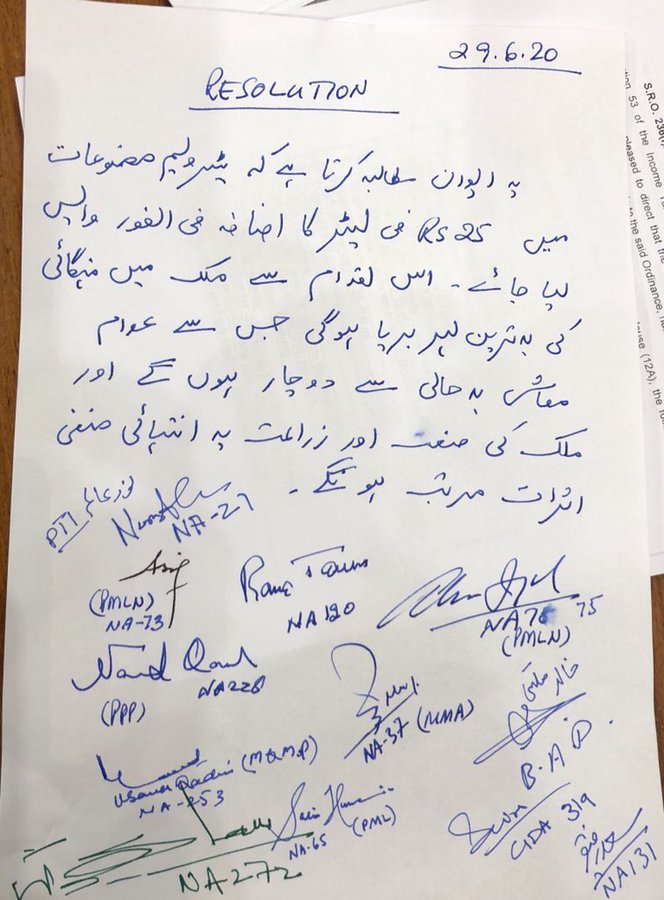 29.6.20
RESOLUTION
یہ ایوان مطالبہ کرتا ہے کہ پیٹرولیم مصنوعات
میں Rs 25 فی لیٹر کا اضافہ فی الفور واپس
لیا جائے۔ اس اقدام سے ملک میں مہنگائی
کی بدترین لہر برپا ہوگی جس سے عوام
معاشی بدحالی سے دوچار ہوں گے اور
ملک کی صنعت اور زراعت پہ انتہائی منفی
اثرات مرتب ہونگے۔
نور عالم
PTI
NA-27
(PMLN)
NA-73
Rana
NA 120
NA 75 75
(PMLN)
Naveed Qamar
NA 228
(PPP)
NA-37 (MMA)
خالد مگسی
B.A.P.
Usama Qadri (MQM.P)
NA-253
NA-65
(PML)
NA-272
GDA 319
سعد رفیق
NA131
S.R.O. 236(I)
53 of the Income
pleased to direct that the
to the said Ordinance,
(12A), the